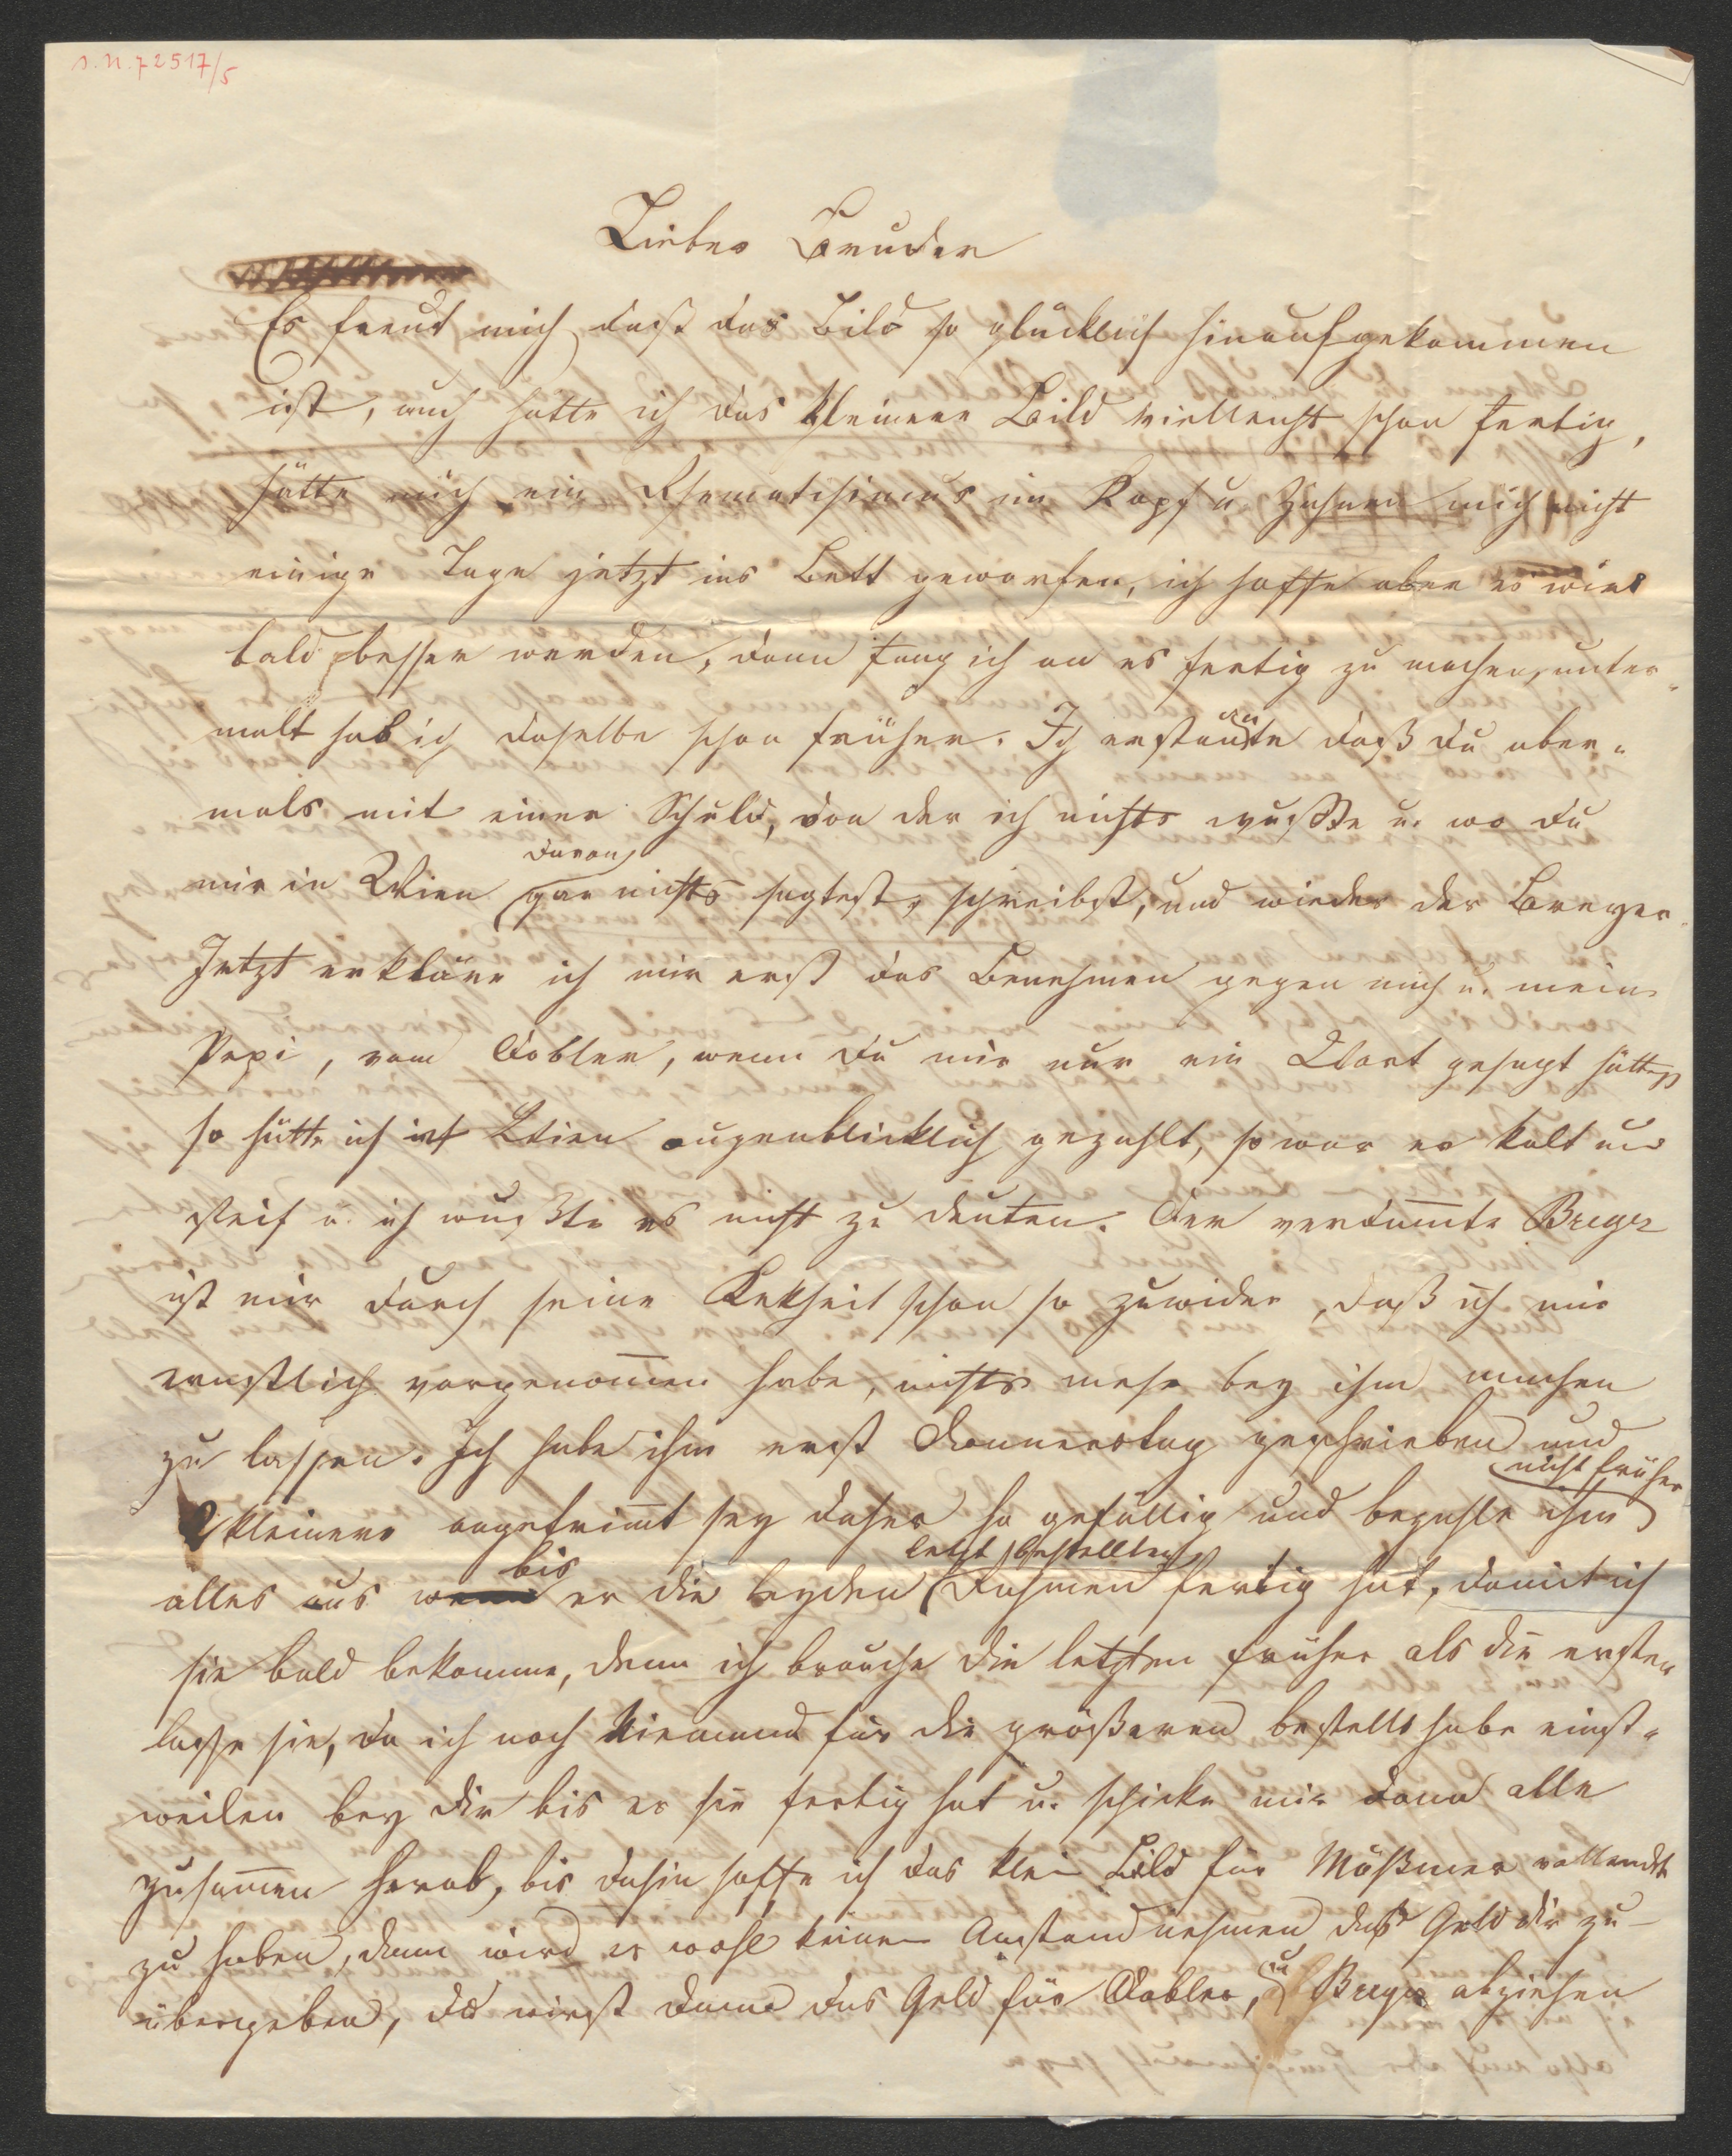 I.N. 72517/5
Lieber Bruder
Es freut mich, daß das Bild so glücklich hinaufgekommen
ist, auch hätte ich das kleinere Bild vielleicht schon fertig,
hätte mich ein Rhematisimus im Kopf u. Zähnen mich nicht
einige Tage jetzt ins Bett geworfen, ich hoffe aber es wird
bald besser werden, dann fang ich an es fertig zu machen, unter-
malt hab ich daselbe schon früher. Ich erstaunte daß du aber-
mals mit einer Schuld, von der ich nichts wußte u. wo du
mir in Wien davon gar nichts sagtest, schreibst, und wieder der Breyer.
Jetzt erkläre ich mir erst das Benehmen gegen mich u. meine
Pepi, vom Dobler, wenn du mir nur ein Wort gesagt hättest
so hätte ich in Wien augenblicklich gezahlt, so war er kalt und
steif u. ich wußte es nicht zu deuten. Der verdammte Breyer
ist mir durch seine Kekheit schon so zuwider, daß ich mir
ernstlich vorgenommen habe, nichts mehr bey ihm machen
zu lassen. Ich habe ihm erst Donnerstag geschrieben und
2 kleinere angefrimmt sey daher so gefällig und bezahle ihm nicht früher
alles aus bis er die beyden letzt bestellten Rahmen fertig hat, damit ich
sie bald bekomme, denn ich brauche die letzten früher als die ersten
lasse sie, da ich noch Niemand für die größeren bestellt habe einst-
weilen bey dir bis er sie fertig hat u. schicke mir dann alle
zusammen herab, bis dahin hoffe ich das klein Bild für Mößmer vollendet
zu haben, dann wird er wohl keinen Anstand nehmen daß Geld dir zu-
übergeben, du wirst dann das Geld für Dobler, u Breyer abziehen